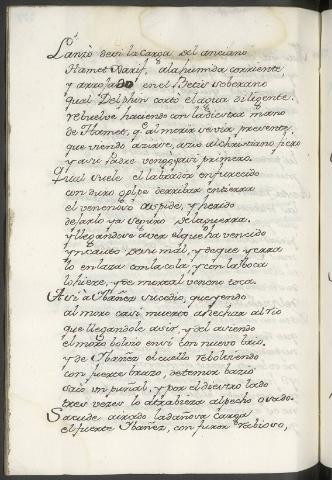 Lanzò de si la carga del anciano
Hamet Xarif, a la humida corriente,
y arrojado en el Betis soberano
qual Delphin cortò el agua diligente.
rebuelve haciendo con la diestra mano
de Hamet, q. al morir se via presente,
que viendo a su ave, asio al christiano fiero
y a su Padre vengò assi primero.
Qual suele el labrador enfurecido
con duro golpe derribar en tierra
el venenoso aspide, y herido
dejarlo ya seguro de la guerra.
y llegandose a ver el que ha vencido
y incauto de su mal, y de que yerra
lo enlaza con la cola, y con la boca
lo hiere, y de mortal veneno toca.
Assi a Ibañez sucedio, queriendo
al moro casi muerto a flechar al rio
que llegandole a asir, y el asiendo
el moro bolvio en si con nuevo brio.
y de Ibañez el cuello rebolviendo
con fuerte brazo, de temor bazio
sacò un puñal, y por el diestro lado
tres vezes lo atrabiesa al pecho osado.
Sacude airado la dañosa carga
el fuerte Ibañez, con furor rabioso,